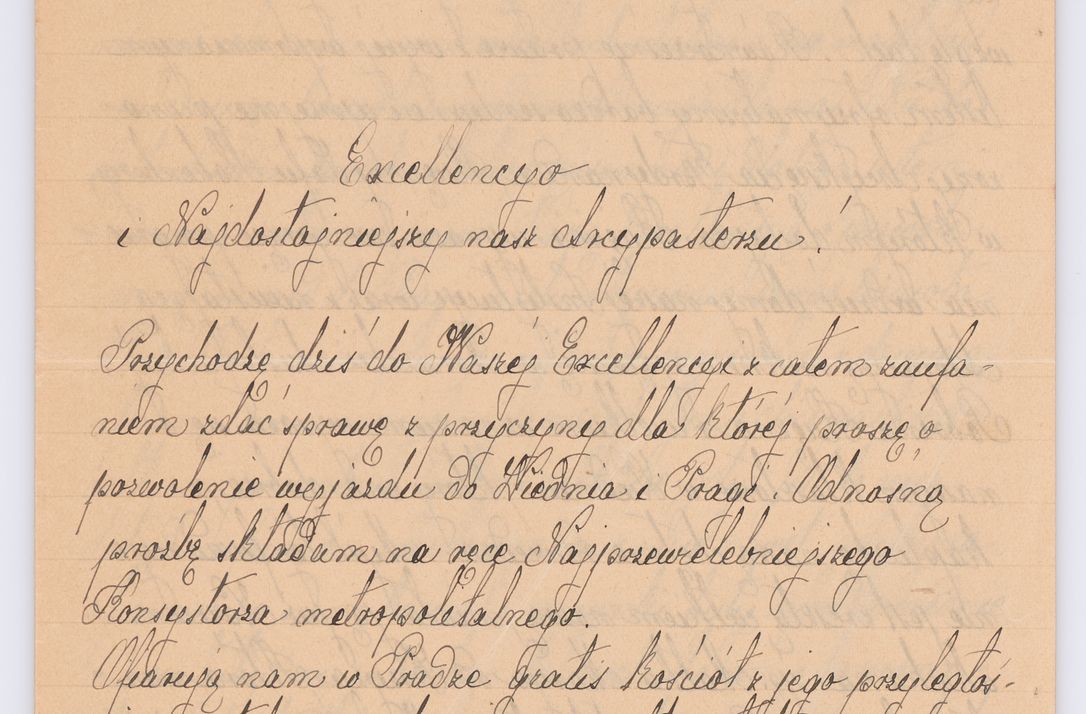 Excellencyo
i Najdostojniejszy nasz Arcypasterzu!
Przychodzę dziś do Waszéj Excellencyi z całem zaufa-
niem zdać sprawę z przyczyny dla któréj proszę o
pozwolenie wyjazdu do Wiednia i Pragi. Odnośną
prośbę składam na ręce Najprzewielebniejszego
Konsystorza metropolitalnego.
Ofiarują nam w Pradze gratis kościół z jego przyległoś-